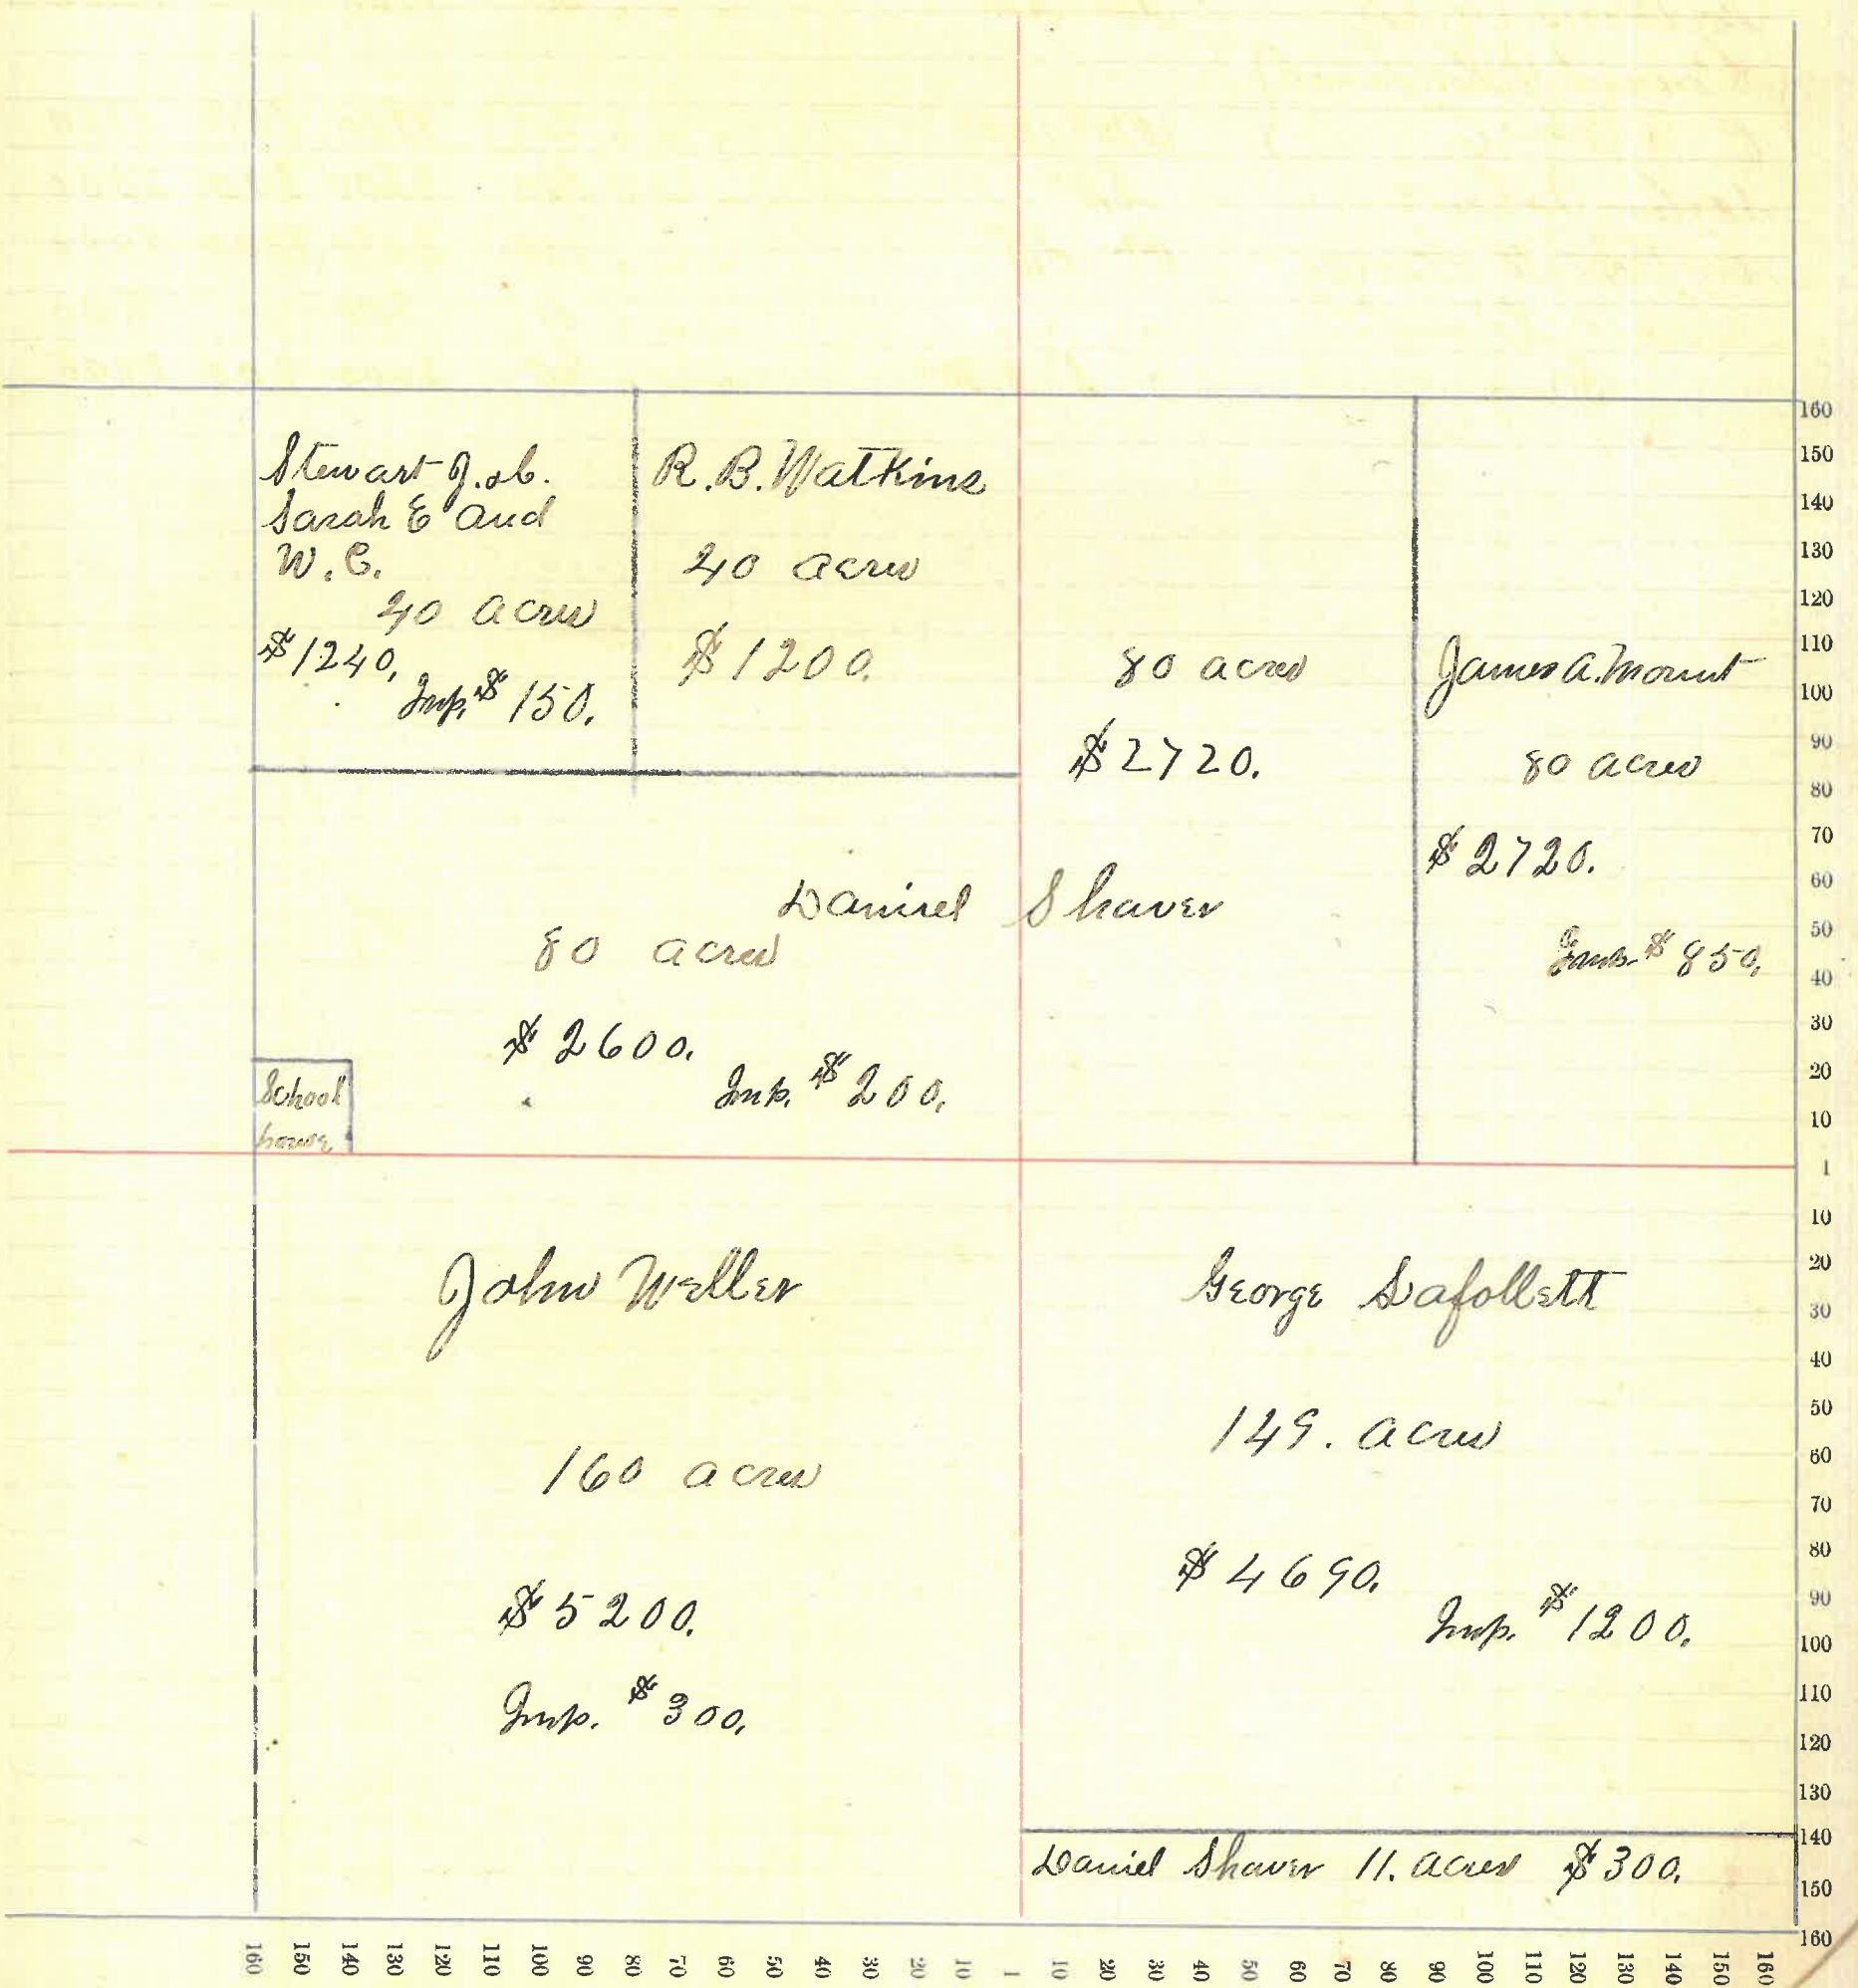 Stewart J. &b.
Sarah E and
W. C.
40 acres
$1240.
Imp. $150.
R. B. Watkins
40 acres
$1200.
80 acres
$2720.
James A. Mount
80 acres
$2720.
Imp. $850.
Daniel Shaver
80 acres
$2600.
Imp. $200.
School
house
John Weller
160 acres
$5200.
Imp. $300.
George Lafollett
149. acres
$4690.
Imp. $1200.
Daniel Shaver 11. acres $300.
160
150
140
130
120
110
100
90
80
70
60
50
40
30
20
10
1
10
20
30
40
50
60
70
80
90
100
110
120
130
140
150
160
160 150 140 130 120 110 100 90 80 70 60 50 40 30 20 10 1 10 20 30 40 50 60 70 80 90 100 110 120 130 140 150 160